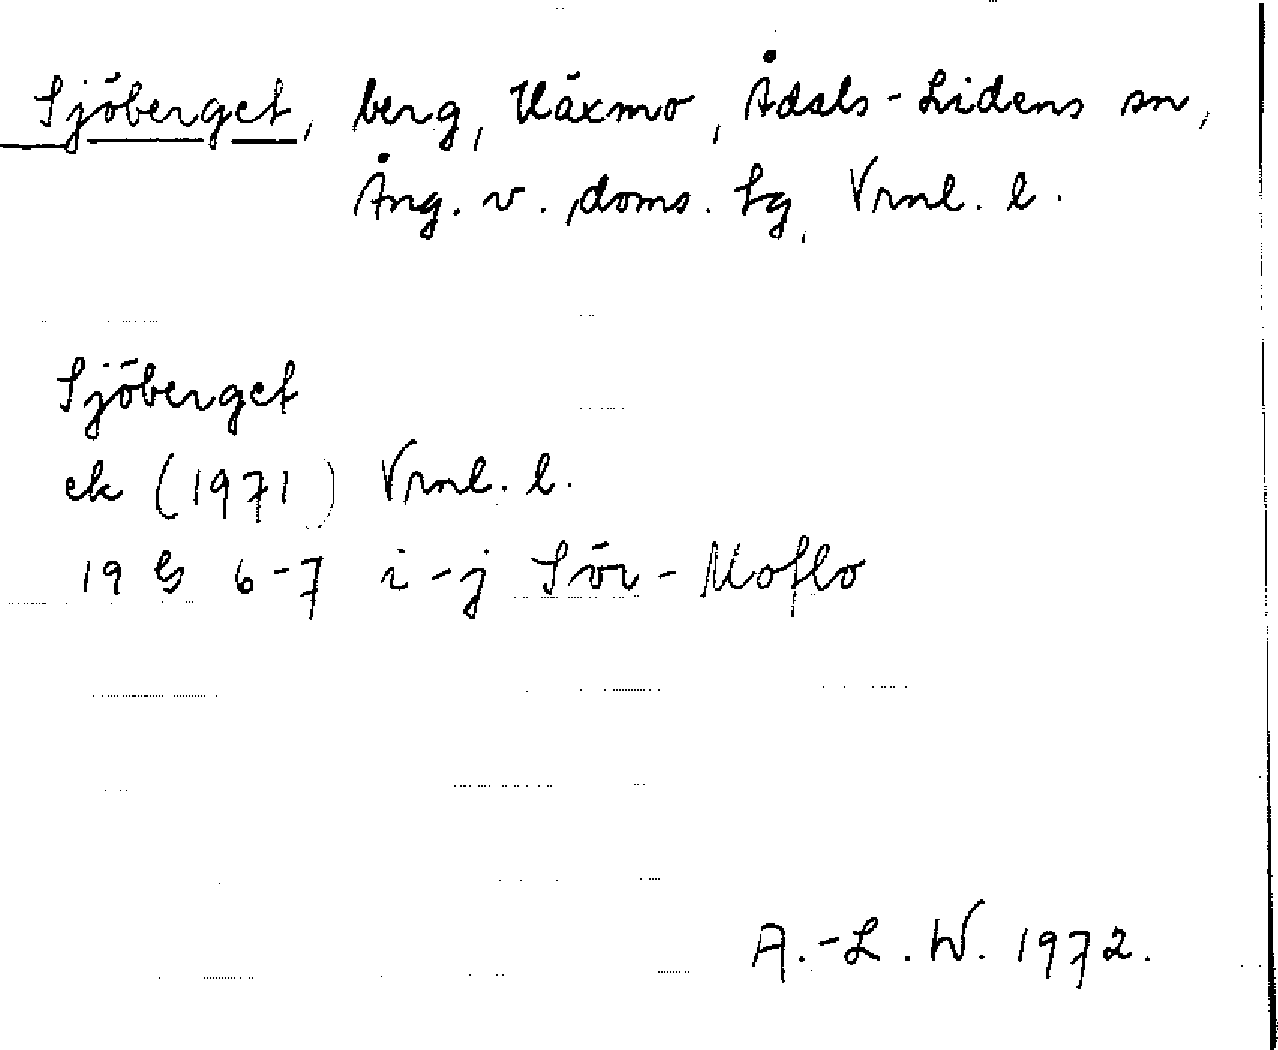 Sjöberget, berg, Käxmo, Ådals-Lidens sn,
Ång. v. doms. lg, Vrnl. l.
Sjöberget
ek (1971) Vrnl. l.
19 G 6-7 i-j Sör-Moflo
A.-L. W. 1972.